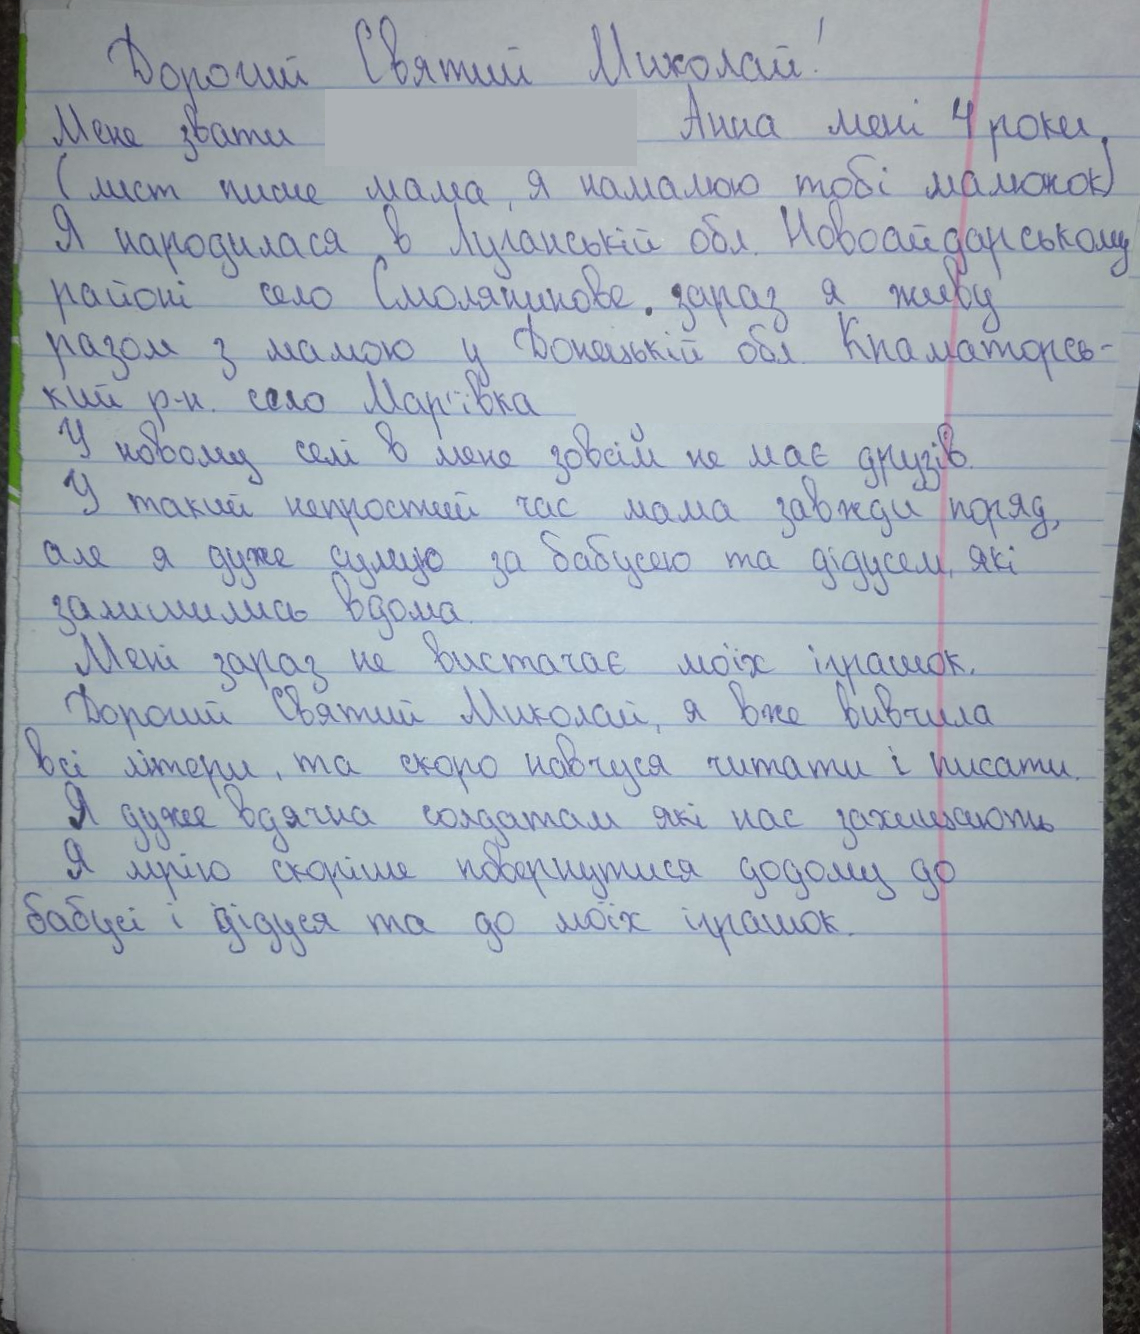 Дорогий Святий Миколай!
Мене звати Анна мені 4 роки.
(лист пише мама, я намалюю тобі малюнок)
Я народилася в Луганській обл. Новоайдарському
районі село Смолянинове. зараз я живу
разом з мамою у Донецькій обл. Краматорсь-
кий р-н. село Мар'ївка
У новому селі в мене зовсім не має друзів.
У такий непростий час мама завжди поряд,
але я дуже сумую за бабусею та дідусем, які
залишились вдома.
Мені зараз не вистачає моїх іграшок.
Дорогий Святий Миколай, я вже вивчила
всі літери, та скоро навчуся читати і писати.
Я дуже вдячна солдатам які нас захищають
Я мрію скоріше повернутися додому до
бабусі і дідуся та до моїх іграшок.